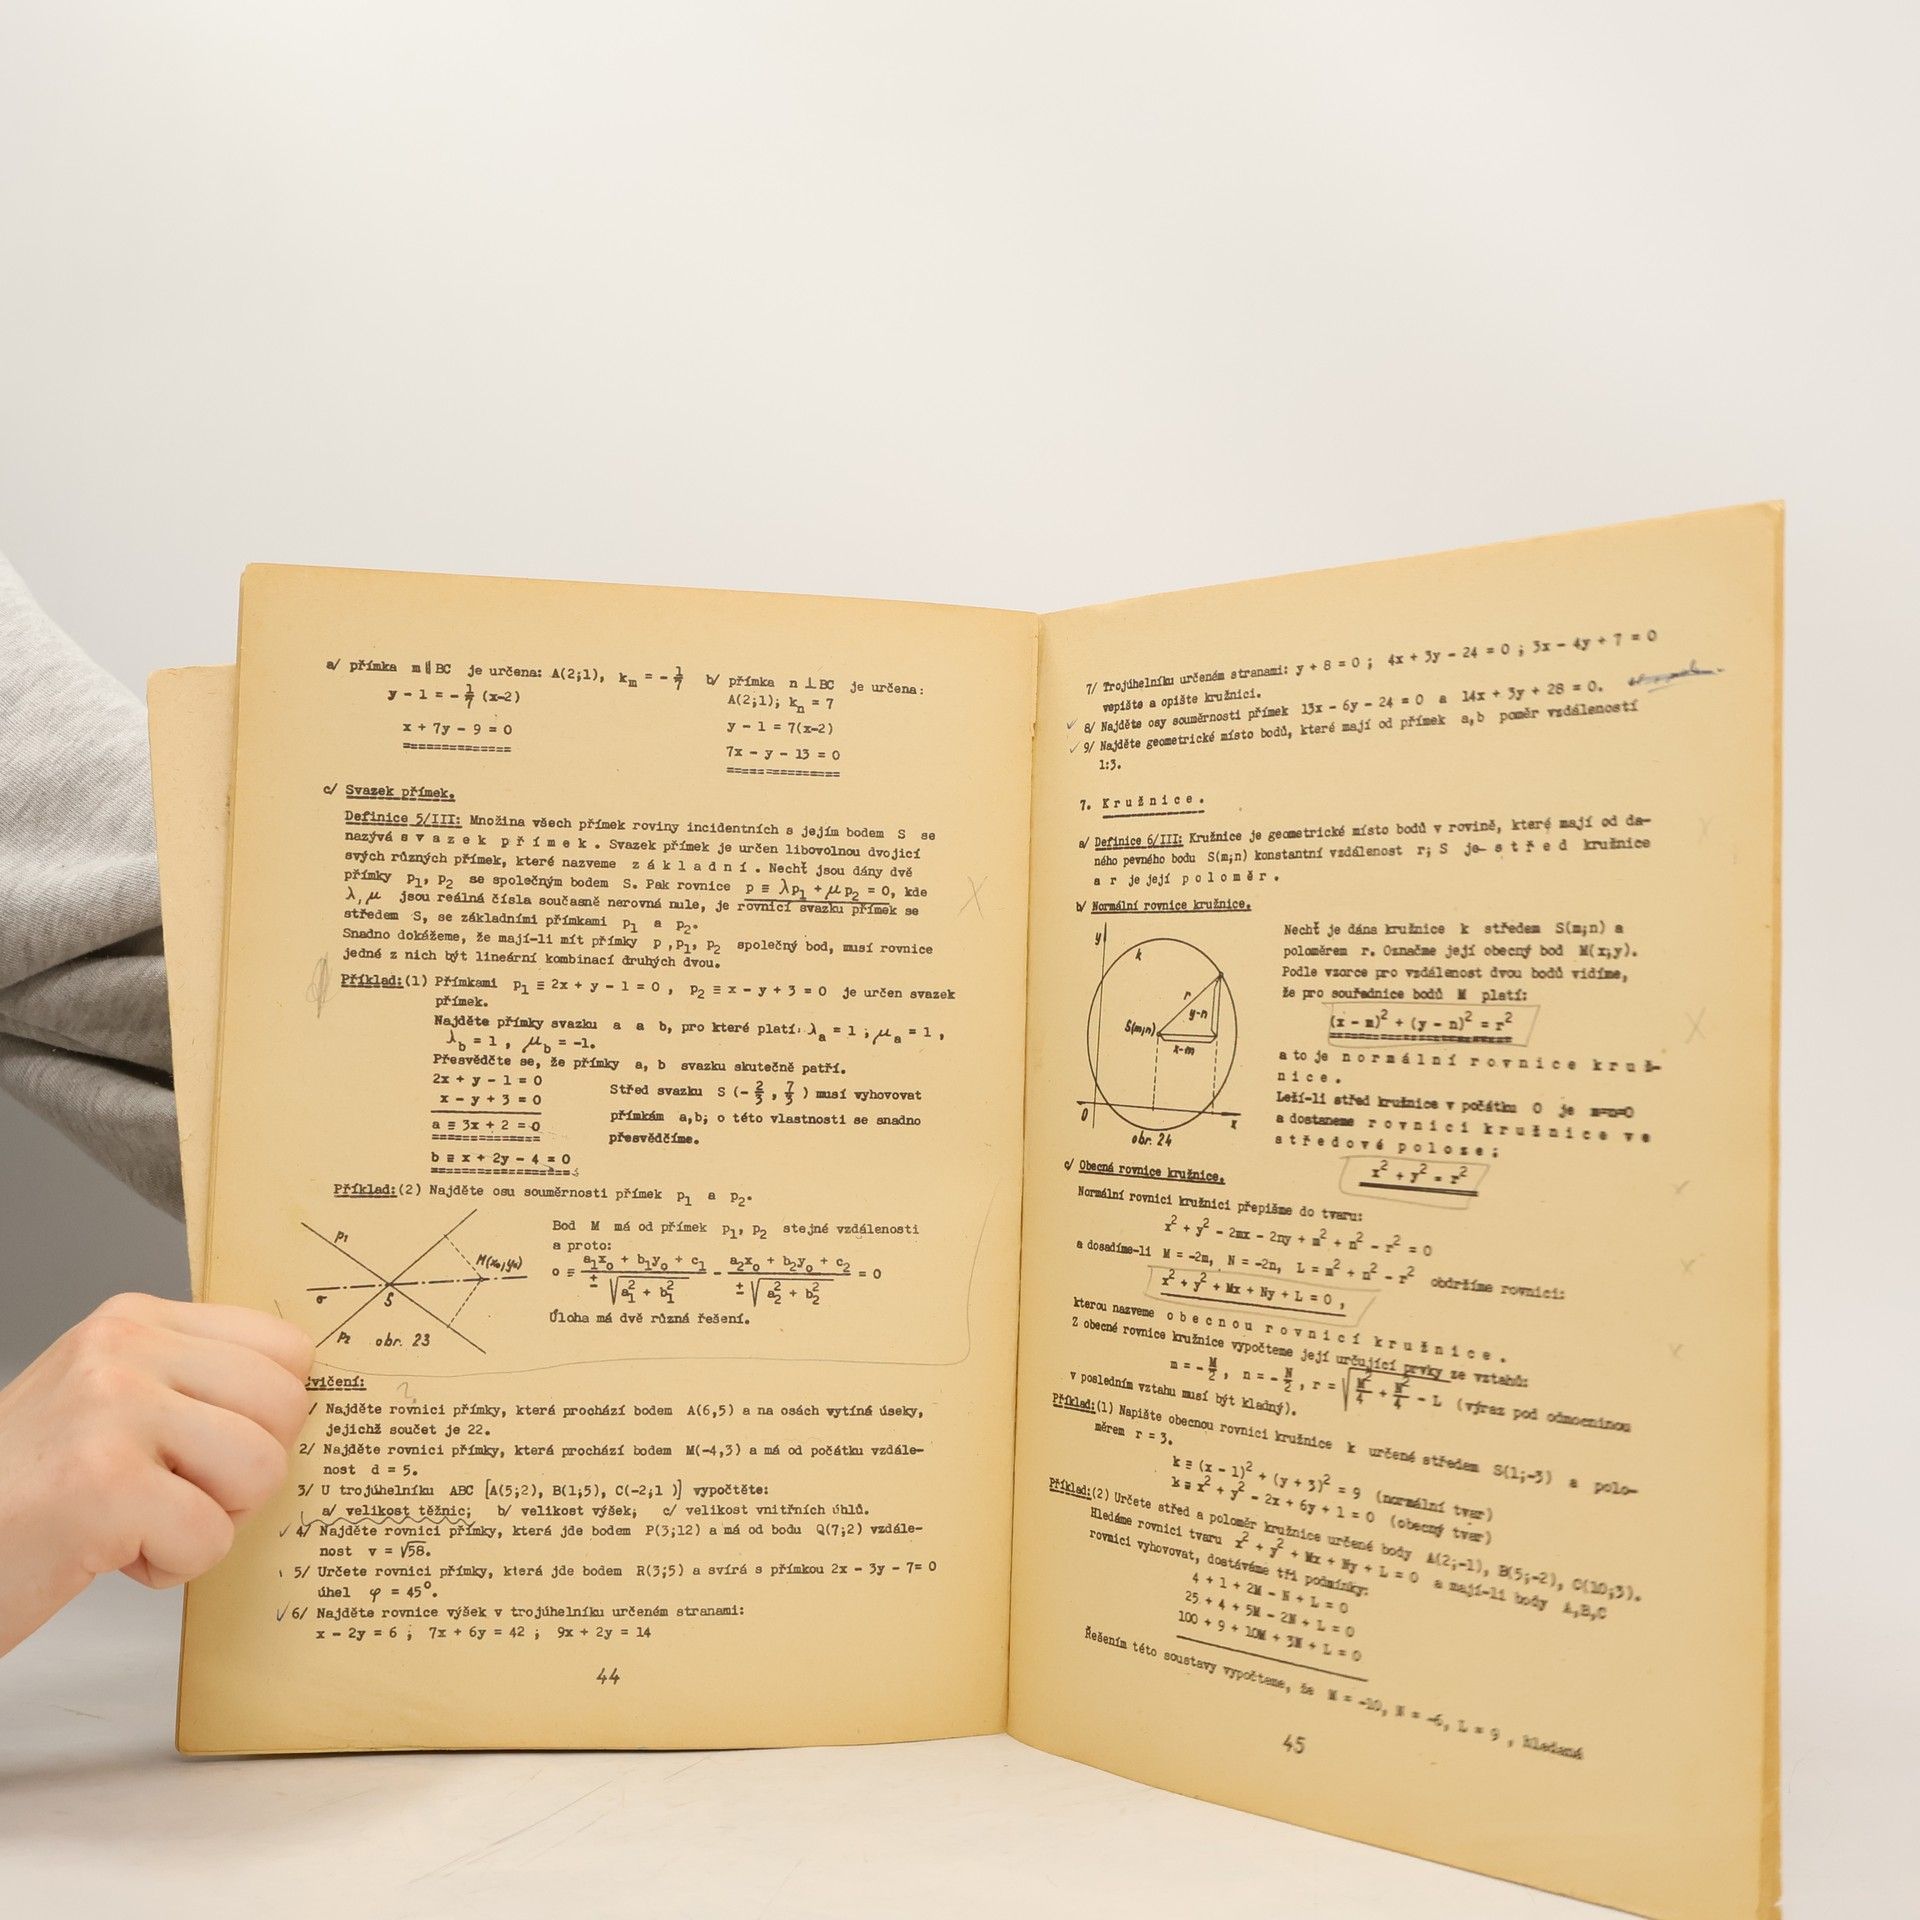 a/ přímka m ∥ BC je určena: A(2;1), kₘ = - 1/7
y - 1 = - 1/7 (x-2)
x + 7y - 9 = 0
=============
b/ přímka n ⊥ BC je určena:
A(2;1); kₙ = 7
y - 1 = 7(x-2)
7x - y - 13 = 0
===============
c/ Svazek přímek.
Definice 5/III: Množina všech přímek roviny incidentních s jejím bodem S se
nazývá s v a z e k p ř í m e k . Svazek přímek je určen libovolnou dvojicí
svých různých přímek, které nazveme z á k l a d n í . Nechť jsou dány dvě
přímky p₁, p₂ se společným bodem S. Pak rovnice p ≡ λp₁ + μp₂ = 0, kde
λ, μ jsou reálná čísla současně nerovná nule, je rovnicí svazku přímek se
středem S, se základními přímkami p₁ a p₂.
Snadno dokážeme, že mají-li mít přímky p ,p₁, p₂ společný bod, musí rovnice
jedné z nich být lineární kombinací druhých dvou.
Příklad:(1) Přímkami p₁ ≡ 2x + y - 1 = 0 , p₂ ≡ x - y + 3 = 0 je určen svazek
přímek.
Najděte přímky svazku a a b, pro které platí: λₐ = 1 ; μₐ = 1 ,
λ_b = 1 , μ_b = -1.
Přesvědčte se, že přímky a, b svazku skutečně patří.
2x + y - 1 = 0
x - y + 3 = 0
a ≡ 3x + 2 = 0
=============
b ≡ x + 2y - 4 = 0
=================
Střed svazku S (- 2/3 , 7/3 ) musí vyhovovat
přímkám a,b; o této vlastnosti se snadno
přesvědčíme.
Příklad:(2) Najděte osu souměrnosti přímek p₁ a p₂.
p₁
M(x₀,y₀)
σ
S
p₂
obr. 23
Bod M má od přímek p₁, p₂ stejné vzdálenosti
a proto:
o ≡ (a₁x₀ + b₁y₀ + c₁)/(± √(a₁² + b₁²)) - (a₂x₀ + b₂y₀ + c₂)/(± √(a₂² + b₂²)) = 0
Úloha má dvě různá řešení.
Cvičení: ?
/ Najděte rovnici přímky, která prochází bodem A(6,5) a na osách vytíná úseky,
jejichž součet je 22.
2/ Najděte rovnici přímky, která prochází bodem M(-4,3) a má od počátku vzdále-
nost d = 5.
3/ U trojúhelníku ABC [A(5;2), B(1;5), C(-2;1 )] vypočtěte:
a/ velikost těžnic; b/ velikost výšek; c/ velikost vnitřních úhlů.
4/ Najděte rovnici přímky, která jde bodem P(3;12) a má od bodu Q(7;2) vzdále-
nost v = √58.
5/ Určete rovnici přímky, která jde bodem R(3;5) a svírá s přímkou 2x - 3y - 7= 0
úhel φ = 45°.
6/ Najděte rovnice výšek v trojúhelníku určeném stranami:
x - 2y = 6 ; 7x + 6y = 42 ; 9x + 2y = 14
44
7/ Trojúhelníku určeném stranami: y + 8 = 0 ; 4x + 3y - 24 = 0 ; 3x - 4y + 7 = 0
vepište a opište kružnici.
8/ Najděte osy souměrnosti přímek 13x - 6y - 24 = 0 a 14x + 3y + 28 = 0.
9/ Najděte geometrické místo bodů, které mají od přímek a,b poměr vzdáleností
1:3.
7. K r u ž n i c e .
a/ Definice 6/III: Kružnice je geometrické místo bodů v rovině, které mají od da-
ného pevného bodu S(m;n) konstantní vzdálenost r; S je s t ř e d kružnice
a r je její p o l o m ě r .
b/ Normální rovnice kružnice.
y
k
r
y-n
S(m;n)
x-m
0
x
obr. 24
Nechť je dána kružnice k středem S(m;n) a
poloměrem r. Označme její obecný bod M(x;y).
Podle vzorce pro vzdálenost dvou bodů vidíme,
že pro souřadnice bodů M platí:
(x - m)² + (y - n)² = r²
a to je n o r m á l n í r o v n i c e k r u ž-
n i c e .
Leží-li střed kružnice v počátku O je m=n=0
a dostaneme r o v n i c i k r u ž n i c e v e
s t ř e d o v é p o l o z e :
x² + y² = r²
c/ Obecná rovnice kružnice.
Normální rovnici kružnici přepišme do tvaru:
x² + y² - 2mx - 2ny + m² + n² - r² = 0
a dosadíme-li M = -2m, N = -2n, L = m² + n² - r² obdržíme rovnici:
x² + y² + Mx + Ny + L = 0 ,
kterou nazveme o b e c n o u r o v n i c í k r u ž n i c e .
Z obecné rovnice kružnice vypočteme její určující prvky ze vztahů:
m = - M/2 , n = - N/2 , r = √(M²/4 + N²/4 - L) (výraz pod odmocninou
v posledním vztahu musí být kladný).
Příklad:(1) Napište obecnou rovnici kružnice k určené středem S(1;-3) a polo-
měrem r = 3.
k ≡ (x - 1)² + (y + 3)² = 9 (normální tvar)
k ≡ x² + y² - 2x + 6y + 1 = 0 (obecný tvar)
Příklad:(2) Určete střed a poloměr kružnice určené body A(2;-1), B(5;-2), C(10;3).
Hledáme rovnici tvaru x² + y² + Mx + Ny + L = 0 a mají-li body A,B,C
rovnici vyhovovat, dostáváme tři podmínky:
4 + 1 + 2M - N + L = 0
25 + 4 + 5M - 2N + L = 0
100 + 9 + 10M + 3N + L = 0
Řešením této soustavy vypočteme, že M = -10, N = -6, L = 9 , hledaná
45